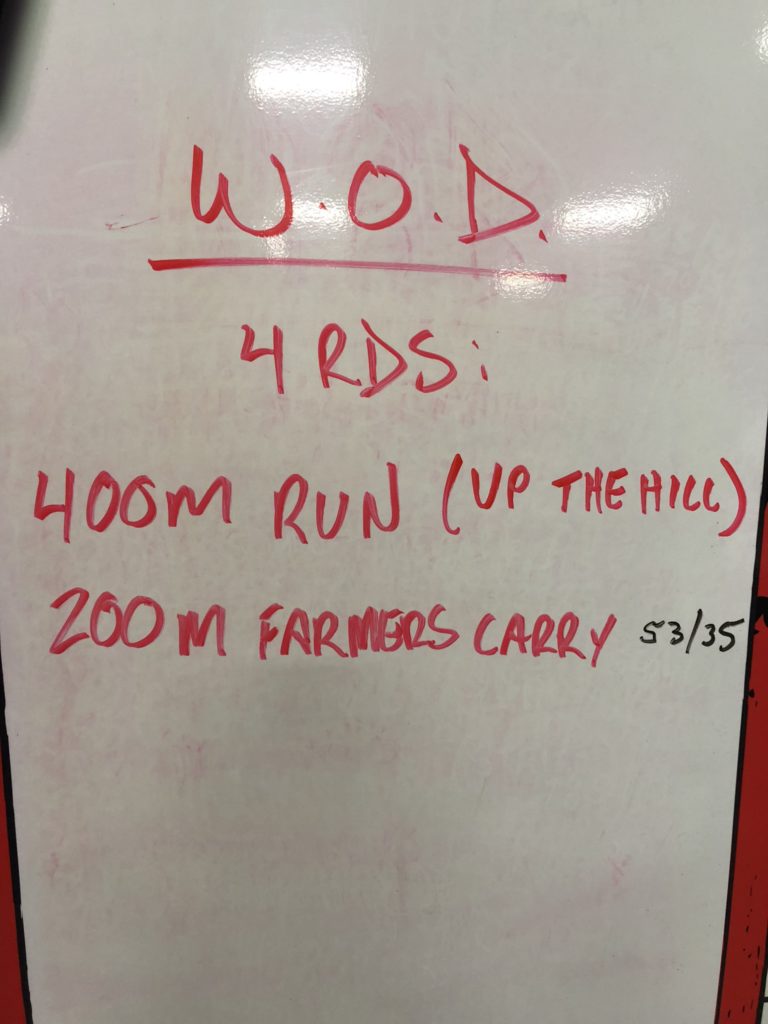 W.O.D.
4 RDS:
400M RUN (UP THE HILL)
200M FARMERS CARRY 53/35